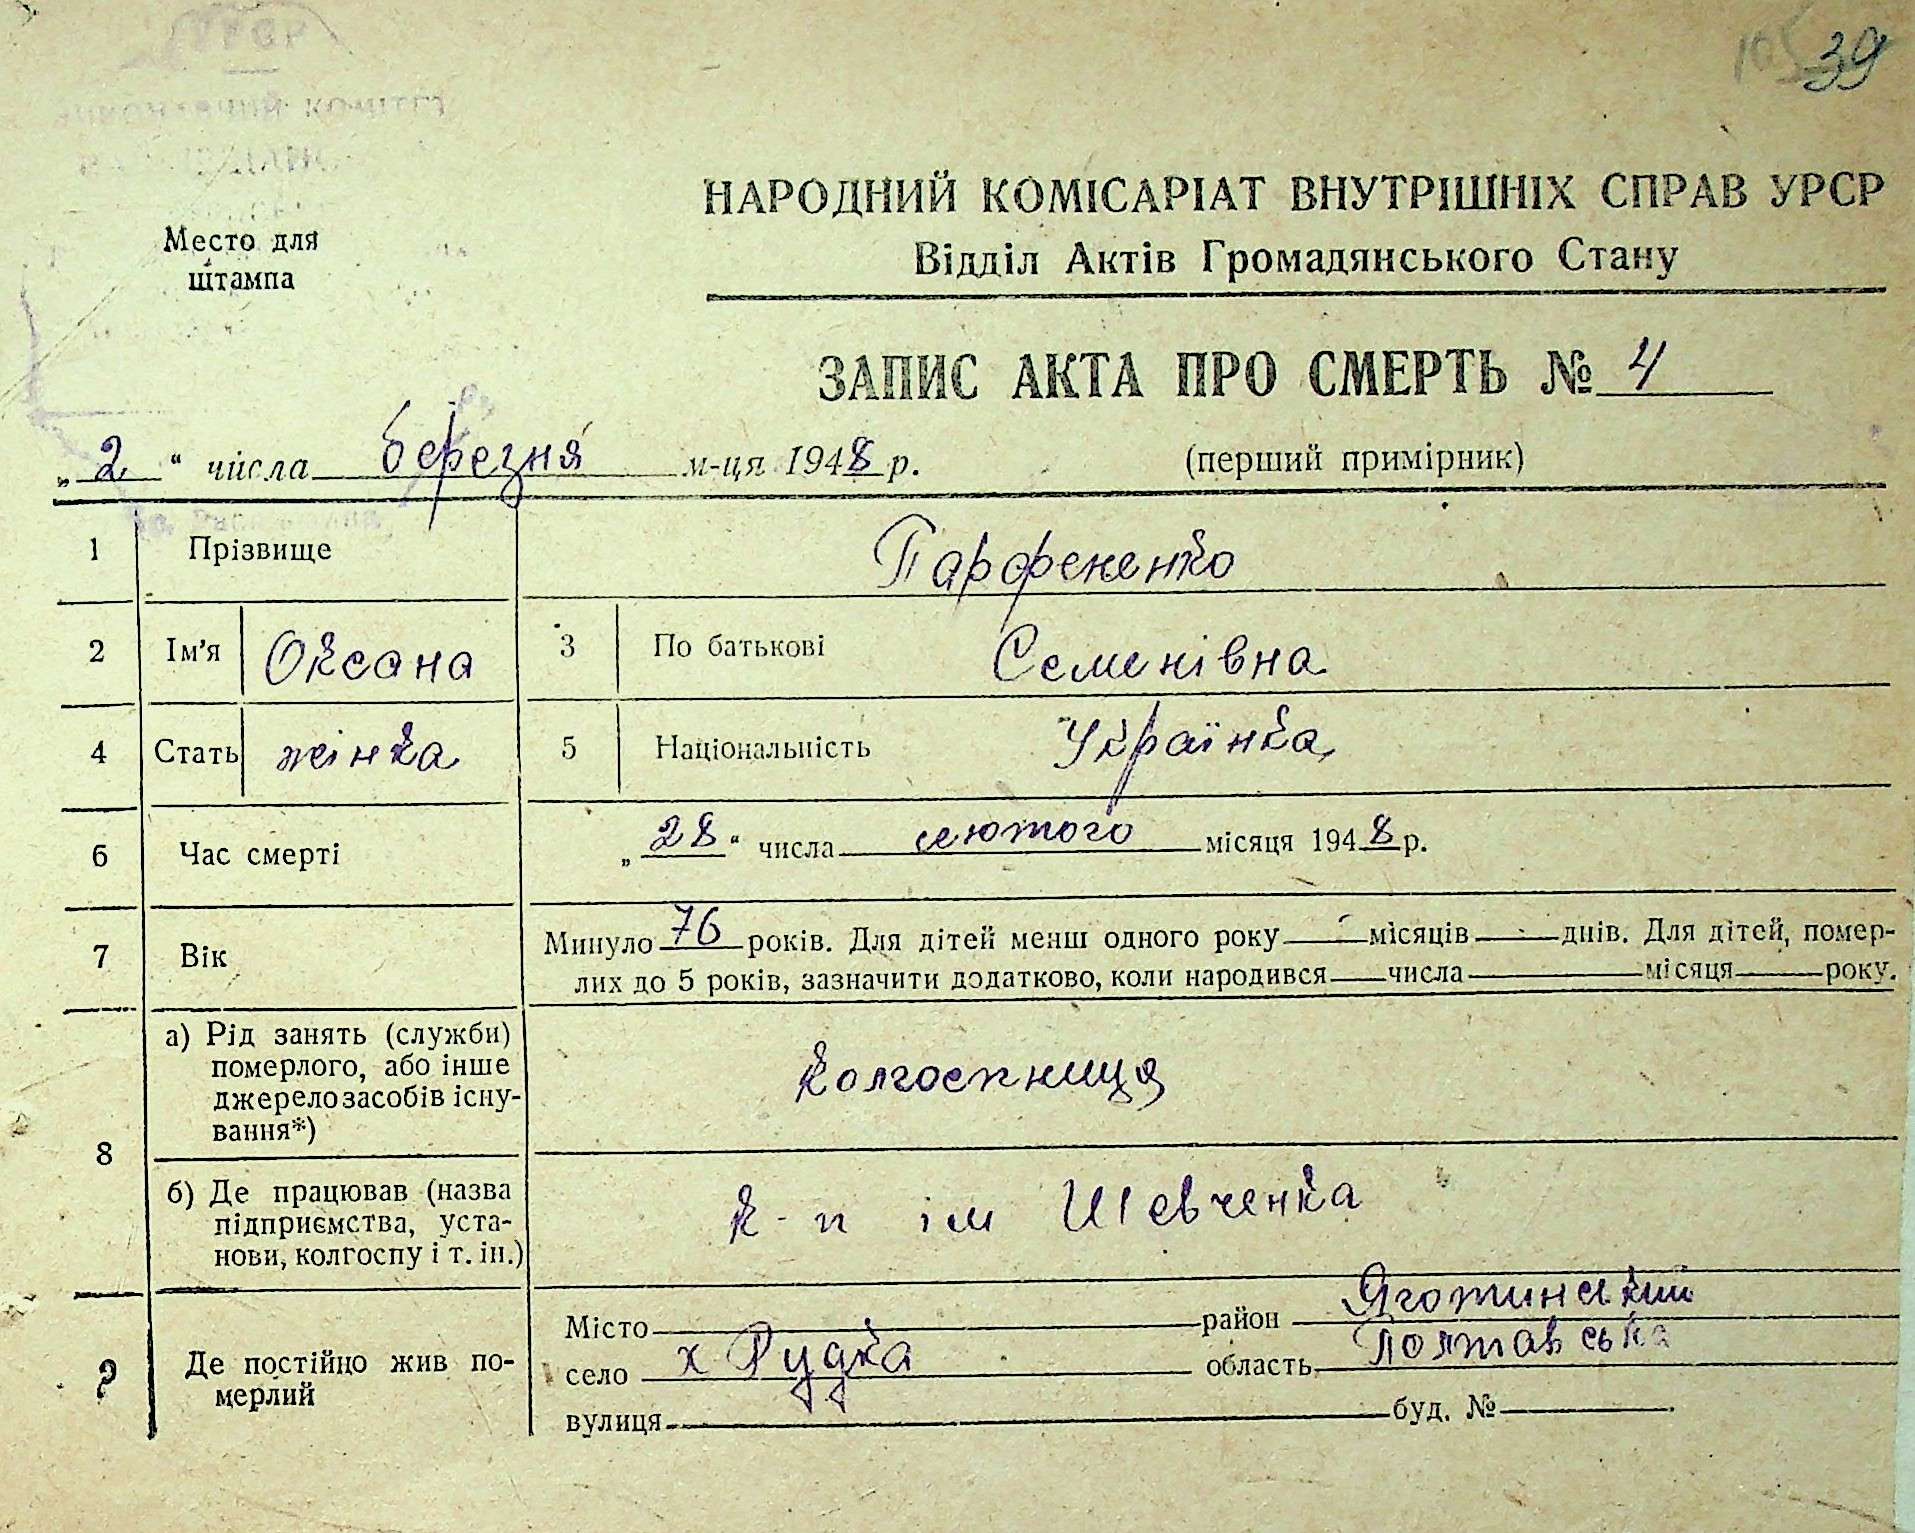 39
УРСР
КОМІТЕТ
НАРОДНИЙ КОМІСАРІАТ ВНУТРІШНІХ СПРАВ УРСР
Відділ Актів Громадянського Стану
Место для
штампа
ЗАПИС АКТА ПРО СМЕРТЬ № 4
„2“ числа березня м-ця 1948 р.
(перший примірник)
1 Прізвище Парфененко
2 Ім'я Оксана 3 По батькові Семенівна
4 Стать жінка 5 Національність Українка
6 Час смерті „28“ числа лютого місяця 1948 р.
7 Вік Минуло 76 років. Для дітей менш одного року місяців днів. Для дітей, помер-
лих до 5 років, зазначити додатково, коли народився числа місяця року.
8 а) Рід занять (служби)
померлого, або інше
джерело засобів існу-
вання*)
колгоспниця
б) Де працював (назва
підприємства, уста-
нови, колгоспу і т. ін.)
к-п ім Шевченка
9 Де постійно жив по-
мерлий
Місто район Яготинський
село х Рудка область Полтавська
вулиця буд. №